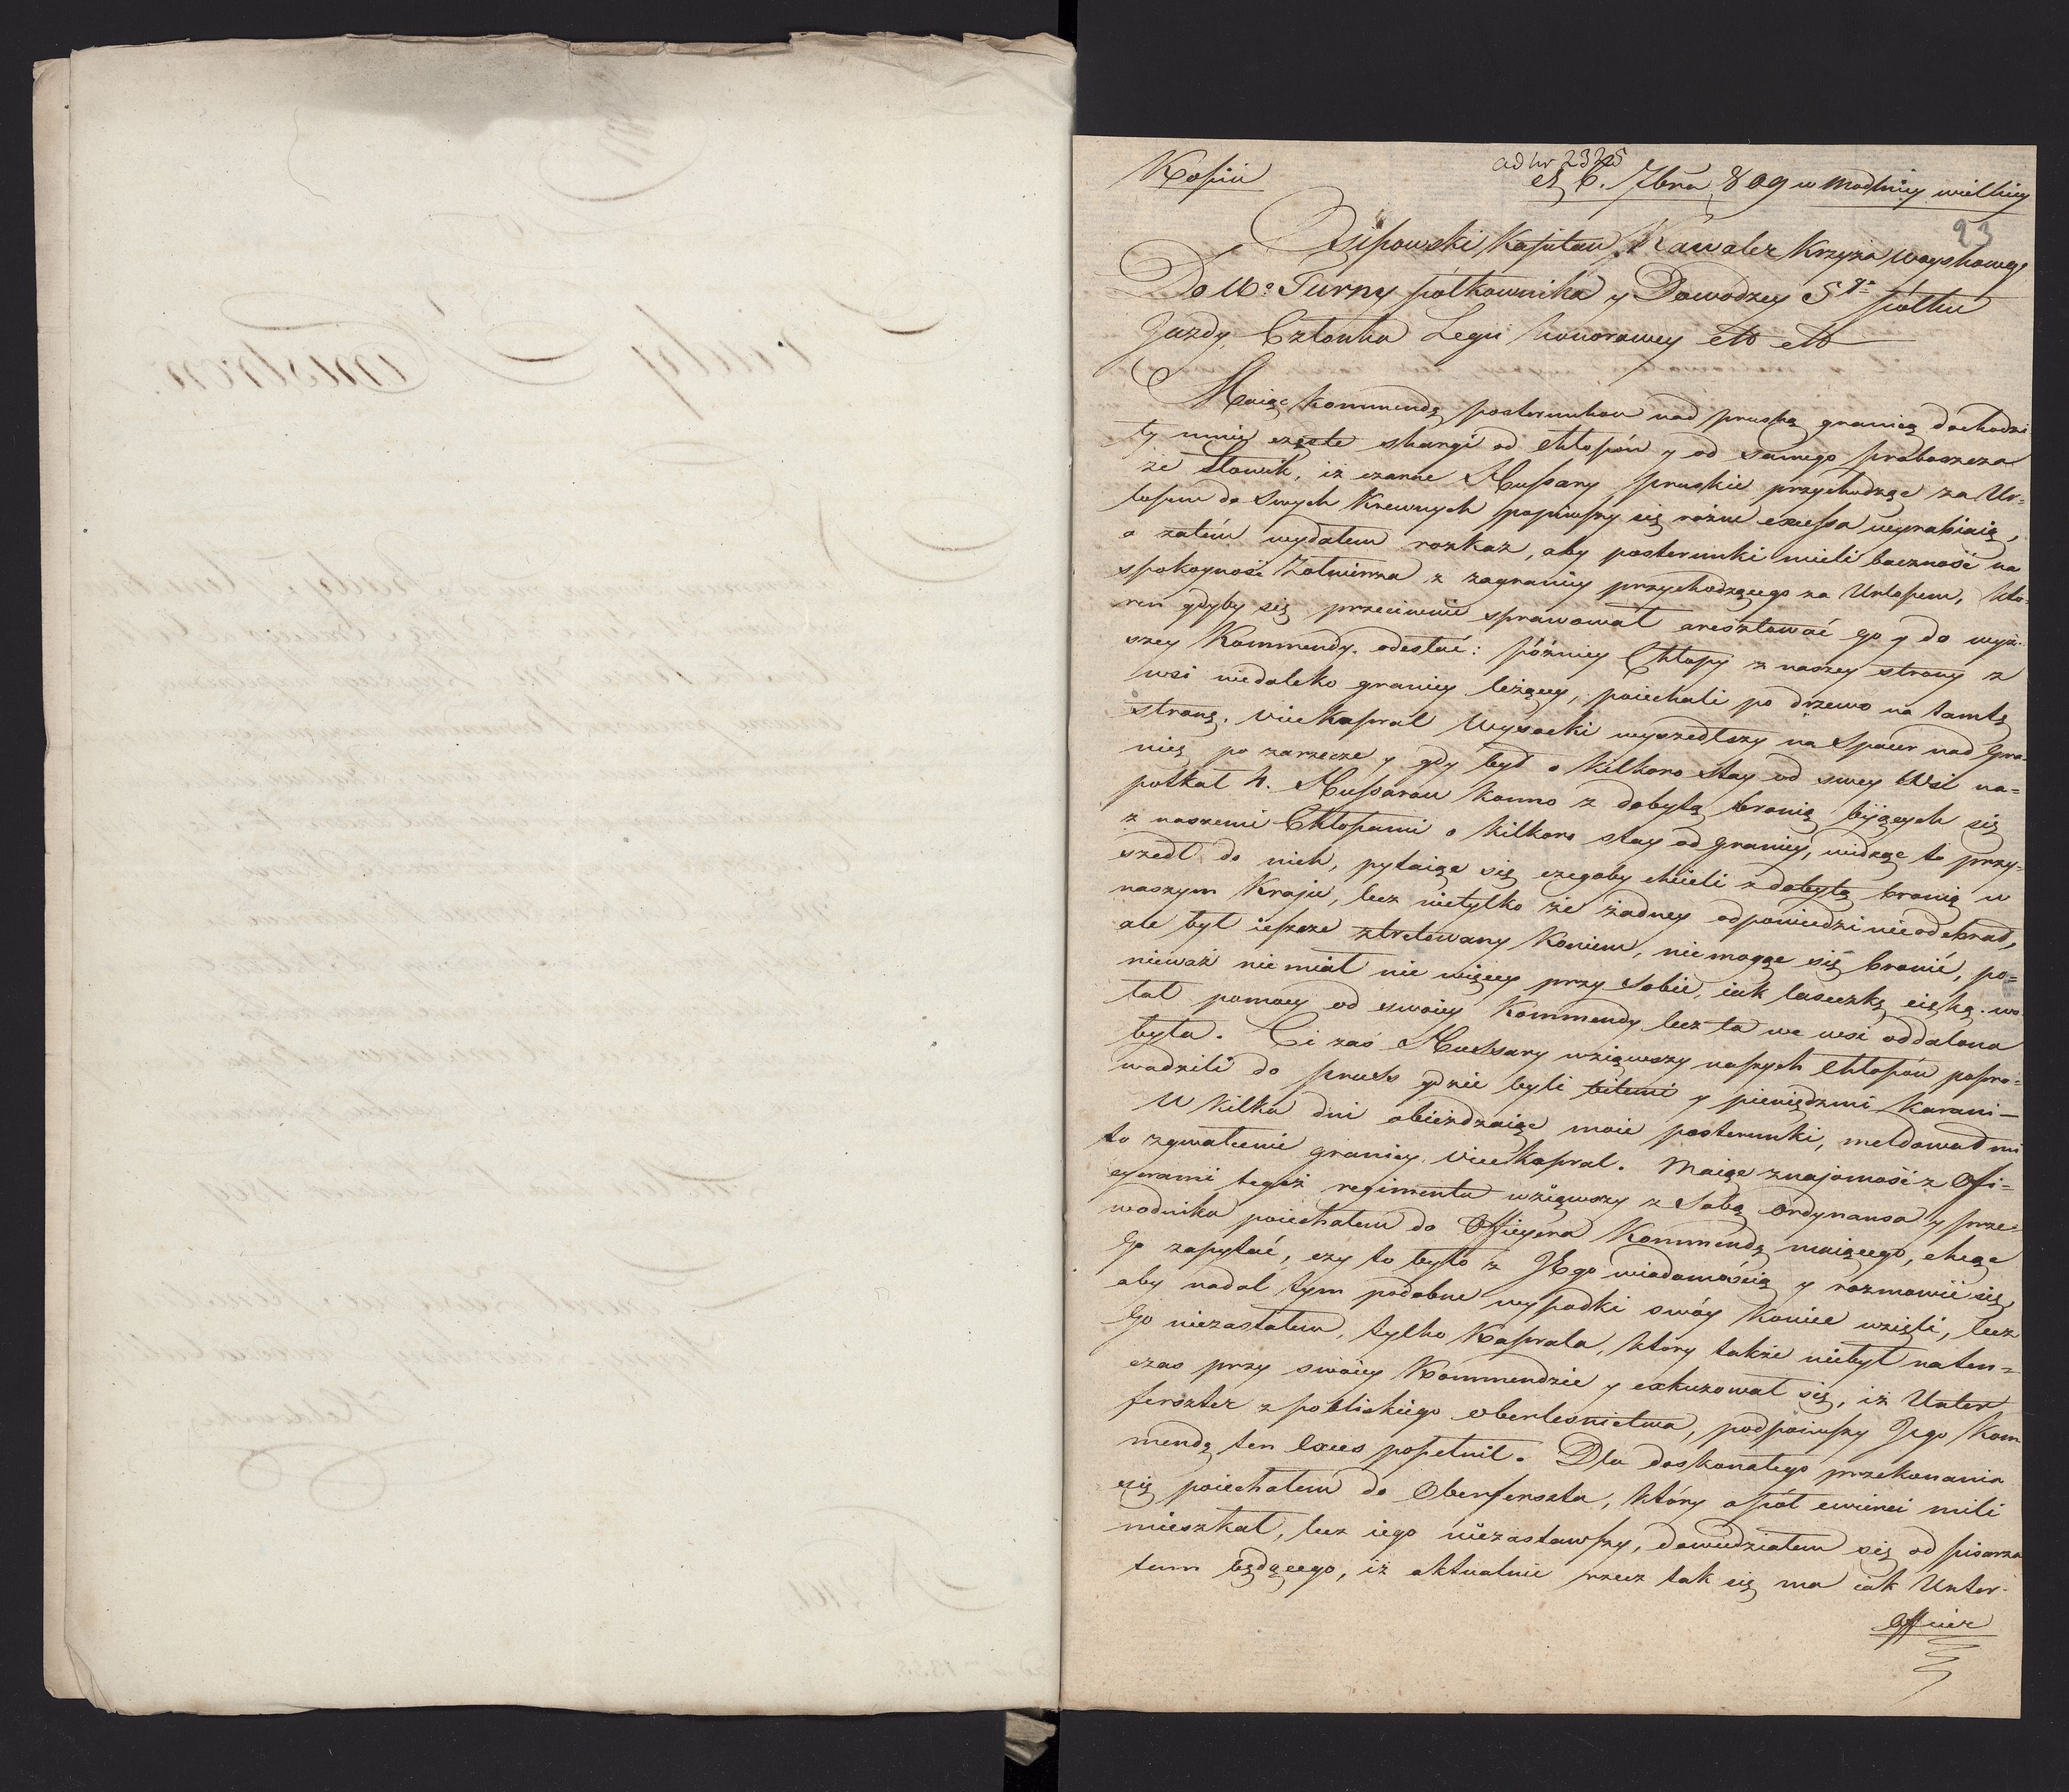 Kopia
ad nr 2325
d. 6. 7bra 809 w Modlnicy wielkiey
23
Osipowski Kapitan, Kawaler Krzyża woyskowego
Do Wo Turny półkownika y Dowodzcy 5go półku
Jazdy, Członka Legii honorowey etc etc
Maiąc kommendę posterunkow nad pruską granicą dochodzi
ły mnię częste skargi od chłopów y od samego proboszcza
że Słowik, iż czarne Hussary pruskie przychodząc za Ur=
lopem do Swych Krewnych popiwszy się rożne excessa wyrabiaią,
a zatém wydałem rozkaz, aby posterunki mieli bacznośc na
spokoyność Żołnierza z zagranicy przychodzącego za Urlopem, kto=
ren gdyby się przeciwnie sprawował aresztować go y do wyż=
szey Kommendy odesłać: późniey Chłopy z naszey strony z
wsi niedaleko granicy leżącey, poiechali po drzewo na tamtą
stronę. vice Kapral Wysocki wyszedłszy na Spacer nad Gra=
nicę po zarzecze y gdy był o kilkoro stay od swey Wsi na=
potkał 4. Hussarow konno z dobytą bronią biiących się
z naszemi Chłopami o kilkoro stay od granicy, widząc to przy=
szedł do nich, pytaiąc się czegoby chcieli z dobytą bronią w
naszym Kraju, lecz nietylko że żadney odpowiedzi nieodebrał,
ale był ieszcze ztretowany Koniem, niemogąc się bronić, po=
nieważ niemiał nic więcey przy Sobie, iak laseczkę cięką. wo
łał pomocy od swoiey Kommendy lecz ta we wsi oddalona
była. Ci zaś Hussary wziąwszy naszych Chłopów popro=
wadzili do Pruss gdzie byli bitemi y pieniędzmi karani—
W kilka dni obieżdzaiąc moie posterunki, meldował mi
to zgwałcenie granicy vice Kapral. Maiąc znajomość z Offi=
cyerami tegoż regimentu wziąwszy z Sobą Ordynansa y prze=
wodnika poiechałem do Officyera Kommendę maiącego, chcąc
go zapytać, czy to było z JEgo wiadomością y rozmowić się,
aby nadal tym podobne wypadki swóy koniec wzięli, lecz
Go niezastałem, tylko Kaprala, ktory także niebył naten=
czas przy swoiey Kommendzie y exkuzował się, iż Unter
ferszter z pobliskiego oberlesnictwa, podpoiwszy Jego Kom
mendę ten Exces popełnił. Dla doskonałego przekonania
się poiechałem do Oberferszta, który o pół cwierci mili
mieszkał, lecz iego niezastawszy, dowiedziałem się od pisarza
tam będącego, iż aktualnie rzecz tak się ma iak Unter-
Officier